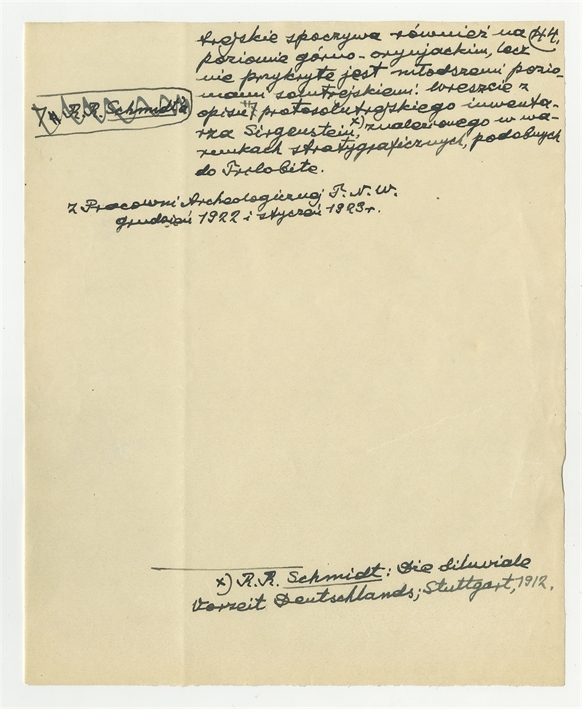 trejskie spoczywa również na 44.
poziomie górno-orynjackim, lecz
nie przykryte jest młodszemi pozio-
mami solutrejskiemi. Wreszcie z
opisu protosolutrejskiego inwenta-
rza Sirgenstein, x) znalezionego w wa-
runkach stratygraficznych, podobnych
do Trilobite.
R.R. Schmidt
z Pracowni Archeologicznej T. N. W.
grudzień 1922 i styczeń 1923 r.
x) R. R. Schmidt: Die diluviale
Vorzeit Deutschlands; Stuttgart, 1912.